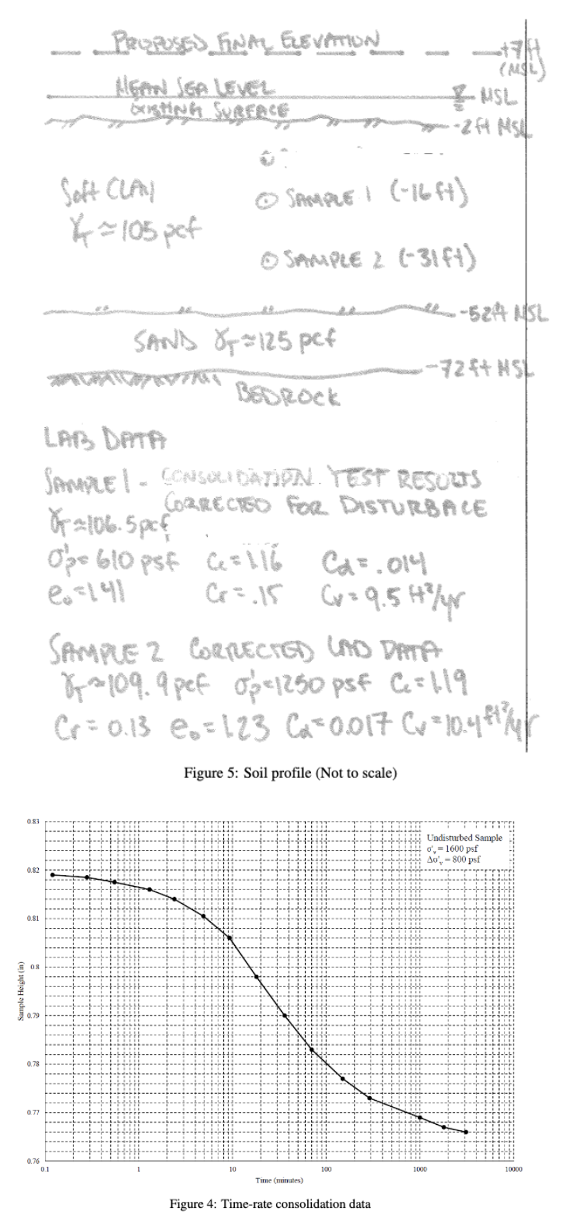 PROPOSED FINAL ELEVATION
+7 ft
(MSL)
MEAN SEA LEVEL
MSL
EXISTING SURFACE
-2 ft MSL
Soft CLAY
SAMPLE 1 (-16 ft)
γT ≃ 105 pcf
SAMPLE 2 (-31 ft)
-52 ft MSL
SAND γT ≃ 125 pcf
-72 ft MSL
BEDROCK
LAB DATA
SAMPLE 1 - CONSOLIDATION TEST RESULTS
CORRECTED FOR DISTURBACE
γT ≃ 106.5 pcf
σ'p = 610 psf Cc = 1.16 Cα = .014
e₀ = 1.41 Cr = .15 Cv = 9.5 ft²/yr
SAMPLE 2 CORRECTED LAB DATA
γT ≃ 109.9 pcf σ'p = 1250 psf Cc = 1.19
Cr = 0.13 e₀ = 1.23 Cα = 0.017 Cv = 10.4 ft²/yr
Figure 5: Soil profile (Not to scale)
0.83
Undisturbed Sample
σ'v = 1600 psf
Δσ'v = 800 psf
0.82
0.81
0.8
0.79
0.78
0.77
0.76
Sample Height (in)
0.1 1 10 100 1000 10000
Time (minutes)
Figure 4: Time-rate consolidation data